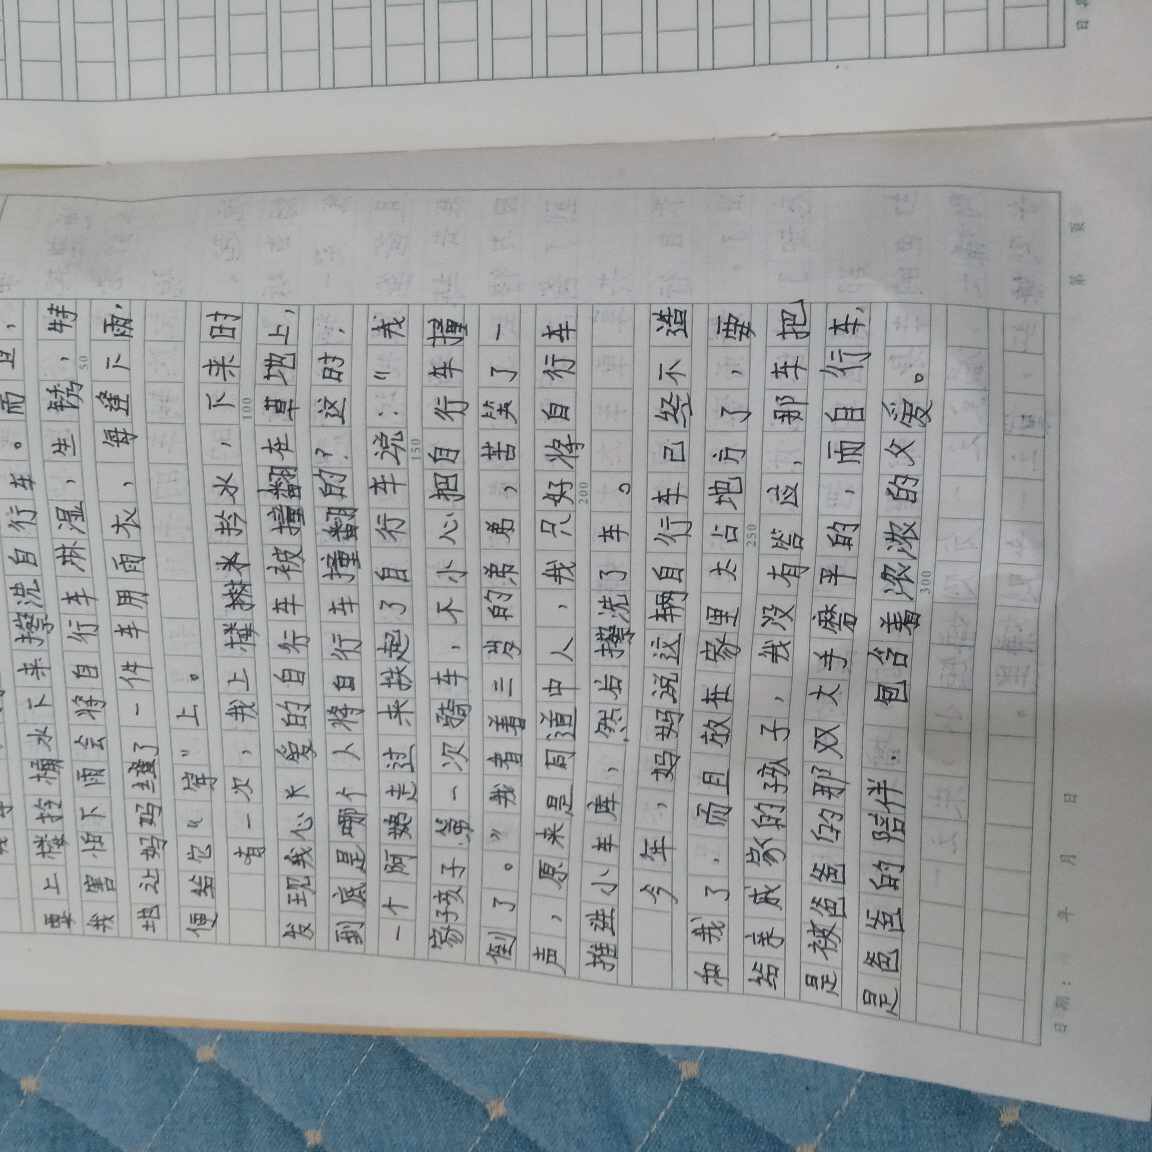 下来擦洗自行车。而且，
要上楼拎桶水下来擦洗自行车。而且，
我害怕下雨会将自行车淋湿，生锈，特
地让妈妈缝了一件车用雨衣，每逢下雨，
便给它“穿”上。
有一次，我上楼拎水，下来时
发现我心爱的自行车被撞翻在草地上，
到底是哪个人将自行车撞翻的？这时，
一个阿姨走过来扶起了自行车说：“我
家孩子第一次骑车，不小心把自行车撞
倒了。”我看着三岁的弟弟，苦笑了一
声，原来是同道中人，我只好将自行车
推进小车库，然后擦洗了车。
今年，妈妈说这辆自行车已经不适
和我了，而且放在家里太占地方了，要
给亲戚家的孩子，我没有答应，那车把
是被爸爸的那双大手磨平的，而自行车，
是爸爸的陪伴，包含着浓浓的父爱。
50
100
150
200
250
300
日期： 年 月 日
第 页